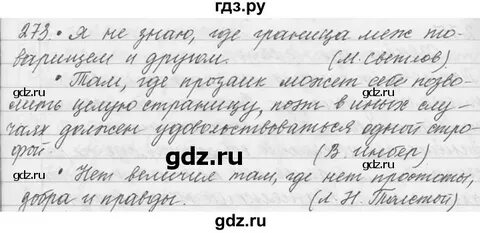 гдз.ру
273. • Я не знаю, где граница меж то-
варищем и другом. (М. Светлов)
• Там, где прозаик может себе позво-
лить целую страницу, поэт в иных слу-
чаях должен удовольствоваться одной стро-
фой. (В. Инбер)
• Нет величия там, где нет простоты,
добра и правды. (Л. Н. Толстой)
gdz.ru
gdz.ru
gdz.ru
gdz.ru
gdz.ru